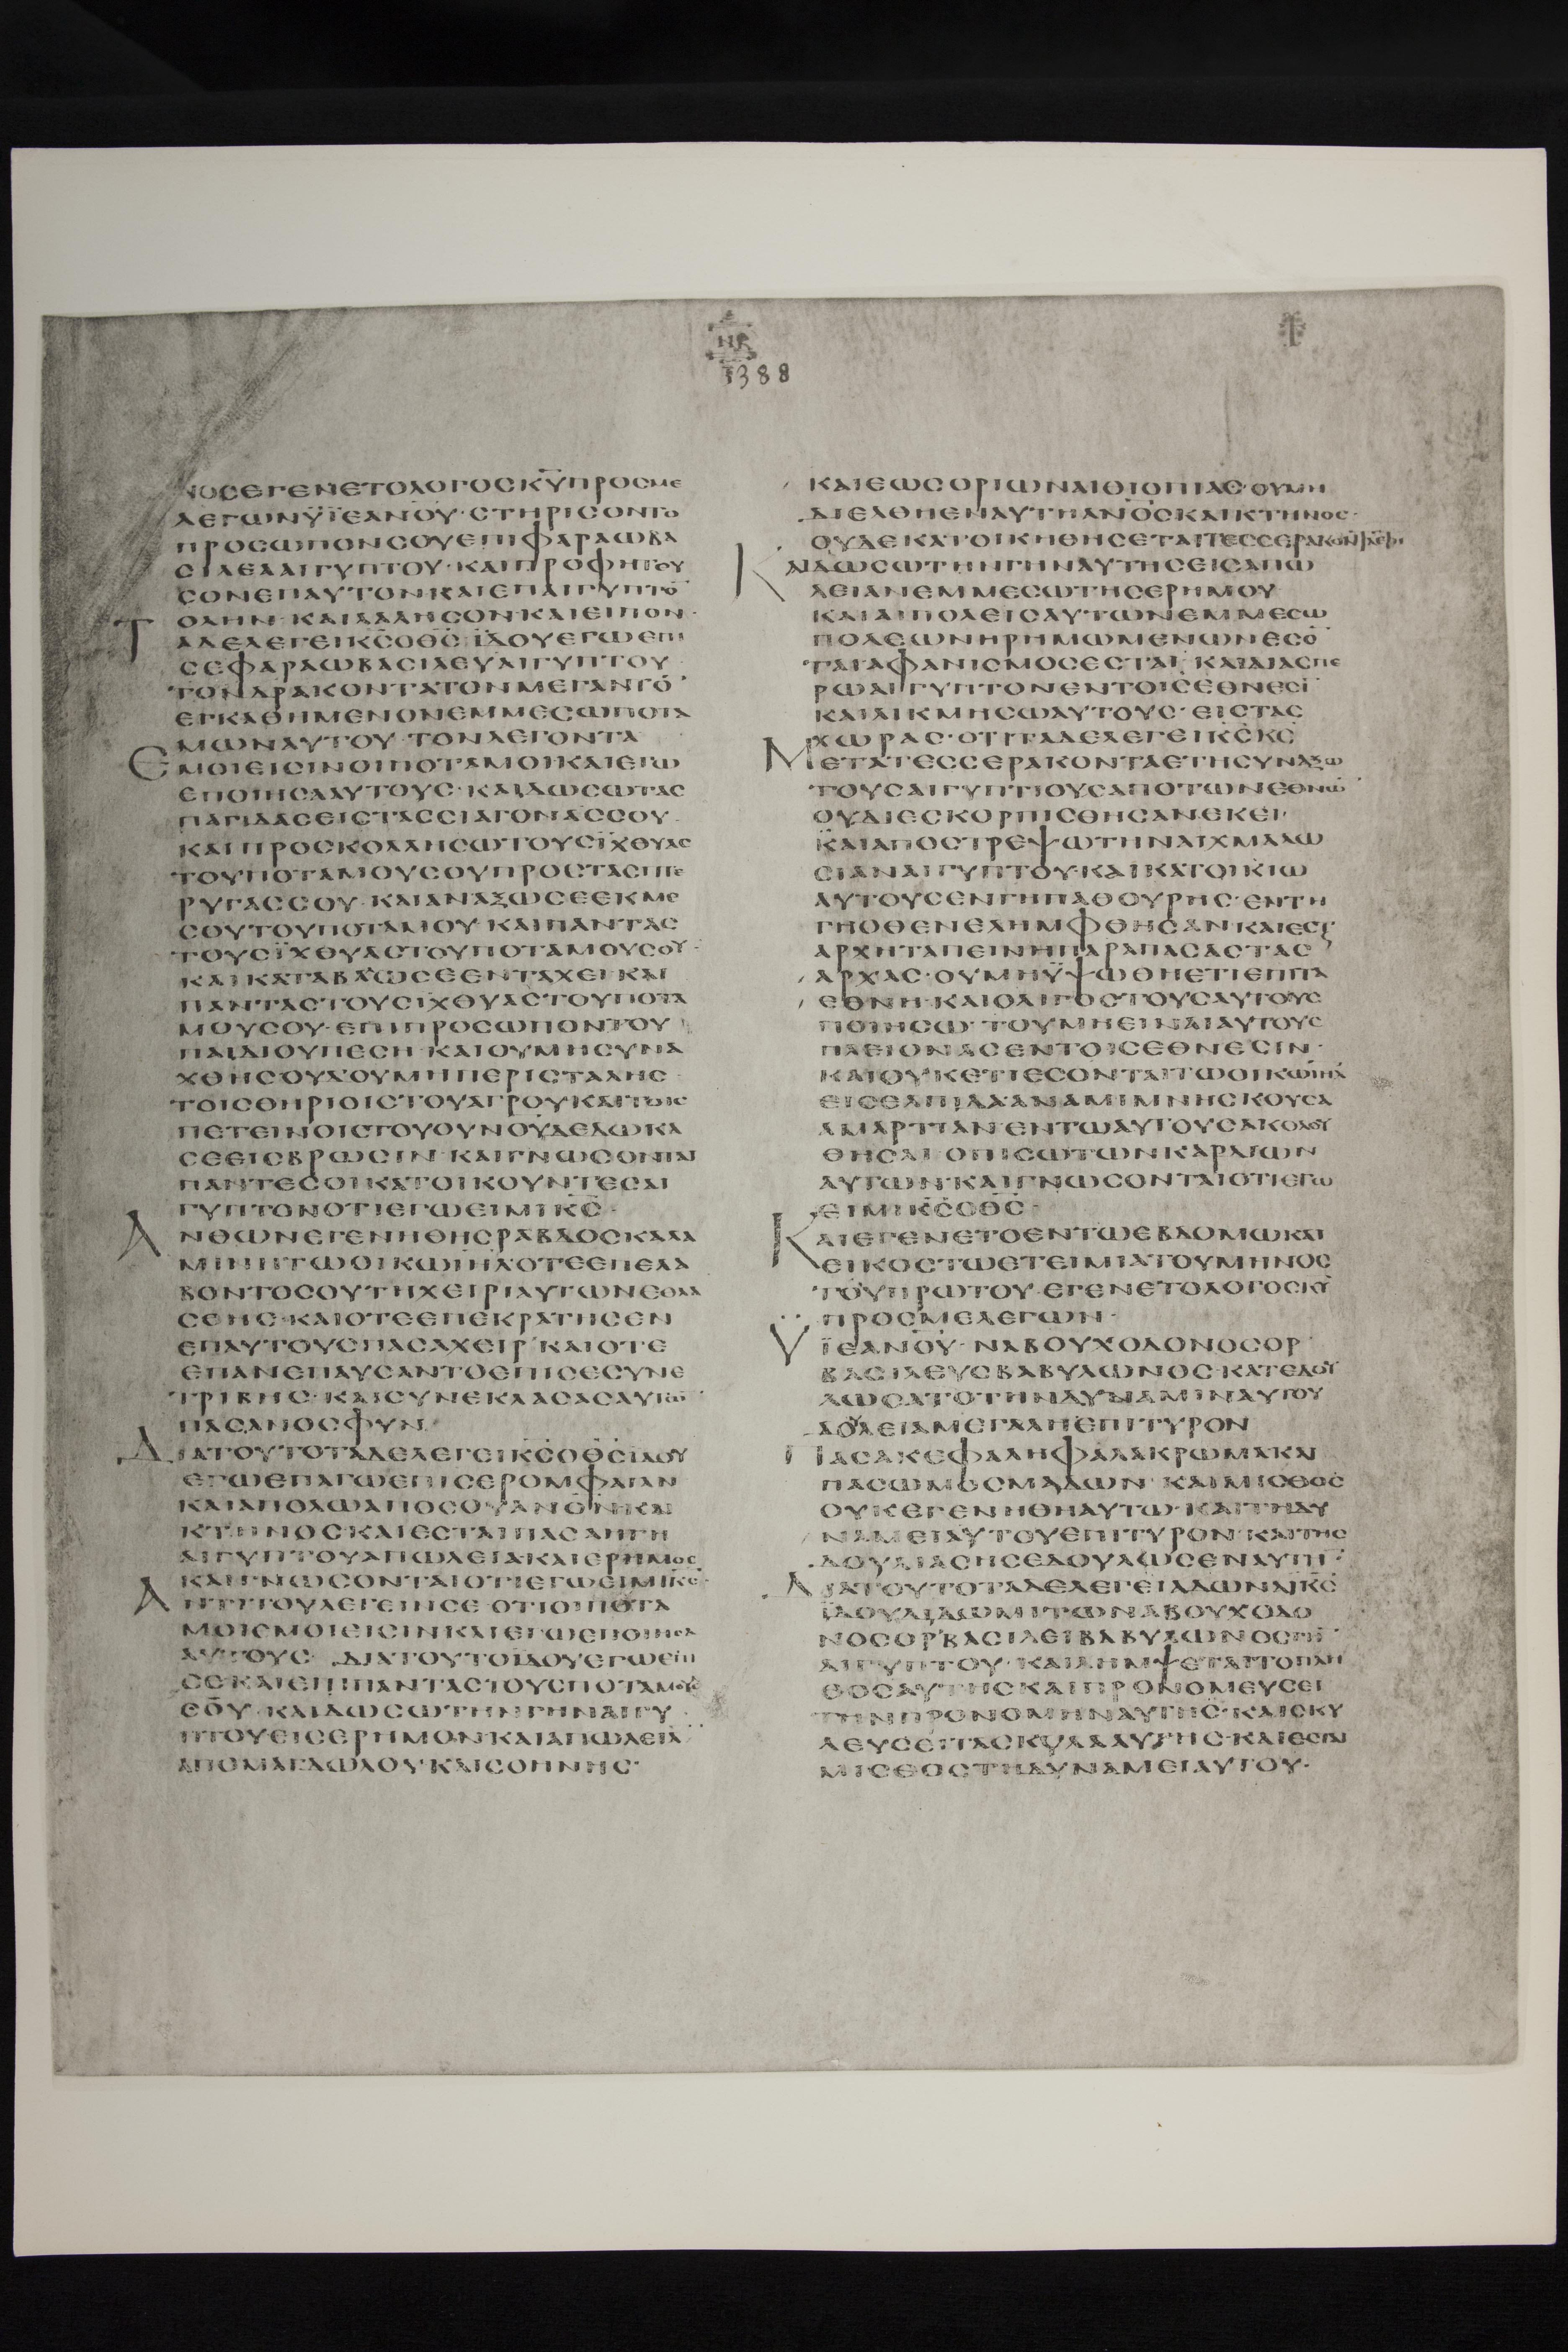 ΝΟΣΕΓΕΝΕΤΟΛΟΓΟΣΚΥΠΡΟΣΜΕ
ΛΕΓΩΝΫΙΕΑΝΟΥ·ΣΤΗΡΙΣΟΝΤΟ
ΠΡΟΣΩΠΟΝΣΟΥΕΠΙΦΑΡΑΩΒΑ
ΣΙΛΕΑΑΙΓΥΠΤΟΥ·ΚΑΙΠΡΟΦΗΤΕΥ
ΣΟΝΕΠΑΥΤΟΝΚΑΙΕΠΑΙΓΥΠΤΟ̅
ΟΛΗΝ·ΚΑΙΛΑΛΗΣΟΝΚΑΙΕΙΠΟΝ·
ΤΑΔΕΛΕΓΕΙΚΣΟΘΣ·ΙΔΟΥΕΓΩΕΠΙ
ΣΕΦΑΡΑΩΒΑΣΙΛΕΥΑΙΓΥΠΤΟΥ
ΤΟΝΔΡΑΚΟΝΤΑΤΟΝΜΕΓΑΝΤΟ̅
ΕΓΚΑΘΗΜΕΝΟΝΕΜΜΕΣΩΠΟΤΑ
ΜΩΝΑΥΤΟΥ·ΤΟΝΛΕΓΟΝΤΑ
ΕΜΟΙΕΙΣΙΝΟΙΠΟΤΑΜΟΙΚΑΙΕΓΩ
ΕΠΟΙΗΣΑΑΥΤΟΥΣ·ΚΑΙΔΩΣΩΤΑΣ
ΠΑΓΙΔΑΣΕΙΣΤΑΣΣΙΑΓΟΝΑΣΣΟΥ·
ΚΑΙΠΡΟΣΚΟΛΛΗΣΩΤΟΥΣΪΧΘΥΑΣ
ΤΟΥΠΟΤΑΜΟΥΣΟΥΠΡΟΣΤΑΣΠΤΕ
ΡΥΓΑΣΣΟΥ·ΚΑΙΑΝΑΞΩΣΕΕΚΜΕ
ΣΟΥΤΟΥΠΟΤΑΜΟΥ·ΚΑΙΠΑΝΤΑΣ
ΤΟΥΣΪΧΘΥΑΣΤΟΥΠΟΤΑΜΟΥΣΟΥ·
ΚΑΙΚΑΤΑΒΑΛΩΣΕΕΝΤΑΧΕΙΚΑΙ
ΠΑΝΤΑΣΤΟΥΣΙΧΘΥΑΣΤΟΥΠΟΤΑ
ΜΟΥΣΟΥ·ΕΠΙΠΡΟΣΩΠΟΝΤΟΥ
ΠΑΙΔΙΟΥΠΕΣΗ·ΚΑΙΟΥΜΗΣΥΝΑ
ΧΘΗΣΟΥΔΟΥΜΗΠΕΡΙΣΤΑΛΗΣ·
ΤΟΙΣΘΗΡΙΟΙΣΤΟΥΑΓΡΟΥΚΑΙΤΟΙΣ
ΠΕΤΕΙΝΟΙΣΤΟΥΟΥΝΟΥΔΕΔΩΚΑ
ΣΕΕΙΣΒΡΩΣΙΝ·ΚΑΙΓΝΩΣΟΝΤΑΙ
ΠΑΝΤΕΣΟΙΚΑΤΟΙΚΟΥΝΤΕΣΑΙ
ΓΥΠΤΟΝΟΤΙΕΓΩΕΙΜΙΚΣ·
ΑΝΘΩΝΕΓΕΝΗΘΗΣΡΑΒΔΟΣΚΑΛΑ
ΜΙΝΗΤΩΟΙΚΩΙΗΛΟΤΕΕΠΕΛΑ
ΒΟΝΤΟΣΟΥΤΗΧΕΙΡΙΑΥΤΩΝΕΘΛΑ
ΣΘΗΣ·ΚΑΙΟΤΕΕΠΕΚΡΑΤΗΣΕΝ
ΕΠΑΥΤΟΥΣΠΑΣΑΧΕΙΡ·ΚΑΙΟΤΕ
ΕΠΑΝΕΠΑΥΣΑΝΤΟΕΠΙΣΕΣΥΝΕ
ΤΡΙΒΗΣ·ΚΑΙΣΥΝΕΚΛΑΣΑΣΑΥΤΩ̅
ΠΑΣΑΝΟΣΦΥΝ·
ΔΙΑΤΟΥΤΟΤΑΔΕΛΕΓΕΙΚΣΟΘΣΙΔΟΥ
ΕΓΩΕΠΑΓΩΕΠΙΣΕΡΟΜΦΑΙΑΝ
ΚΑΙΑΠΟΛΩΑΠΟΣΟΥΑΝΟΝΚΑΙ
ΚΤΗΝΟΣ·ΚΑΙΕΣΤΑΙΠΑΣΑΗΓΗ
ΑΙΓΥΠΤΟΥΑΠΩΛΕΙΑΚΑΙΕΡΗΜΟΣ
ΚΑΙΓΝΩΣΟΝΤΑΙΟΤΙΕΓΩΕΙΜΙΚΣ·
ΑΝΤΙΤΟΥΛΕΓΕΙΝΣΕ·ΟΤΙΟΙΠΟΤΑ
ΜΟΙΕΜΟΙΕΙΣΙΝΚΑΙΕΓΩΕΠΟΙΗΣΑ
ΑΥΤΟΥΣ·ΔΙΑΤΟΥΤΟΙΔΟΥΕΓΩΕΠΙ
ΣΕΚΑΙΕΠΙΠΑΝΤΑΣΤΟΥΣΠΟΤΑΜΟΥΣ
ΣΟΥ·ΚΑΙΔΩΣΩΤΗΝΓΗΝΑΙΓΥ
ΠΤΟΥΕΙΣΕΡΗΜΟΝΚΑΙΑΠΩΛΕΙΑ̅
ΑΠΟΜΑΓΔΩΛΟΥΚΑΙΣΟΗΝΗΣ·
1388
ΚΑΙΕΩΣΟΡΙΩΝΑΙΘΙΟΠΙΑΣ·ΟΥΜΗ
ΔΙΕΛΘΗΕΝΑΥΤΗΑΝΟΣΚΑΙΚΤΗΝΟΣ·
ΟΥΔΕΚΑΤΟΙΚΗΘΗΣΕΤΑΙΤΕΣΣΕΡΑΚΟΝΤΑΕΤΗ·
ΚΑΙΔΩΣΩΤΗΝΓΗΝΑΥΤΗΣΕΙΣΑΠΩ
ΛΕΙΑΝΕΜΜΕΣΩΤΗΣΕΡΗΜΟΥ
ΚΑΙΑΙΠΟΛΕΙΣΑΥΤΩΝΕΜΜΕΣΩ
ΠΟΛΕΩΝΗΡΗΜΩΜΕΝΩΝΕΣΟ̅
ΤΑΙΑΦΑΝΙΣΜΟΣΕΣΤΑΙ·ΚΑΙΔΙΑΣΠΕ
ΡΩΑΙΓΥΠΤΟΝΕΝΤΟΙΣΕΘΝΕΣΙ̅
ΚΑΙΛΙΚΜΗΣΩΑΥΤΟΥΣ·ΕΙΣΤΑΣ
ΧΩΡΑΣ·ΟΤΙΤΑΔΕΛΕΓΕΙΚΣΚΣ
ΜΕΤΑΤΕΣΣΕΡΑΚΟΝΤΑΕΤΗΣΥΝΑΞΩ
ΤΟΥΣΑΙΓΥΠΤΙΟΥΣΑΠΟΤΩΝΕΘΝΩ̅
ΟΥΔΙΕΣΚΟΡΠΙΣΘΗΣΑΝΕΚΕΙ·
ΚΑΙΑΠΟΣΤΡΕΨΩΤΗΝΑΙΧΜΑΛΩ
ΣΙΑΝΑΙΓΥΠΤΟΥ·ΚΑΙΚΑΤΟΙΚΙΩ
ΑΥΤΟΥΣΕΝΓΗΠΑΘΟΥΡΗΣ·ΕΝΤΗ
ΓΗΟΘΕΝΕΛΗΜΦΘΗΣΑΝ·ΚΑΙΕΣΤ
ΑΡΧΗΤΑΠΕΙΝΗΠΑΡΑΠΑΣΑΣΤΑΣ
ΑΡΧΑΣ·ΟΥΜΗΫΨΩΘΗΕΤΙΕΠΙΤΑ
ΕΘΝΗ·ΚΑΙΟΛΙΓΟΣΤΟΥΣΑΥΤΟΥΣ
ΠΟΙΗΣΩ·ΤΟΥΜΗΕΙΝΑΙΑΥΤΟΥΣ
ΠΛΕΙΟΝΑΣΕΝΤΟΙΣΕΘΝΕΣΙΝ·
ΚΑΙΟΥΚΕΤΙΕΣΟΝΤΑΙΤΩΟΙΚΩΙΗΛ
ΕΙΣΕΛΠΙΔΑΑΝΑΜΙΜΝΗΣΚΟΥΣΑ
ΑΜΑΡΤΙΑΝΕΝΤΩΑΥΤΟΥΣΑΚΟΛΟΥ
ΘΗΣΑΙΟΠΙΣΩΤΩΝΚΑΡΔΙΩΝ
ΑΥΤΩΝ·ΚΑΙΓΝΩΣΟΝΤΑΙΟΤΙΕΓΩ
ΕΙΜΙΚΣΟΘΣ·
ΚΑΙΕΓΕΝΕΤΟΕΝΤΩΕΒΔΟΜΩΚΑΙ
ΕΙΚΟΣΤΩΕΤΕΙΜΙΑΤΟΥΜΗΝΟΣ
ΤΟΥΠΡΩΤΟΥ·ΕΓΕΝΕΤΟΛΟΓΟΣΚΥ
ΠΡΟΣΜΕΛΕΓΩΝ·
ΫΪΕΑΝΟΥ·ΝΑΒΟΥΧΟΔΟΝΟΣΟΡ
ΒΑΣΙΛΕΥΣΒΑΒΥΛΩΝΟΣ·ΚΑΤΕΔΟΥ
ΛΩΣΑΤΟΤΗΝΔΥΝΑΜΙΝΑΥΤΟΥ
ΔΟΥΛΕΙΑΜΕΓΑΛΗΕΠΙΤΥΡΟΝ
ΠΑΣΑΚΕΦΑΛΗΦΑΛΑΚΡΩΜΑΚΑΙ
ΠΑΣΩΜΟΣΜΑΔΩΝ·ΚΑΙΜΙΣΘΟΣ
ΟΥΚΕΓΕΝΗΘΗΑΥΤΩ·ΚΑΙΤΗΔΥ
ΝΑΜΕΙΑΥΤΟΥΕΠΙΤΥΡΟΝ·ΚΑΙΤΗΣ
ΔΟΥΛΙΑΣΗΣΕΔΟΥΛΩΣΕΝΑΥΤΗ̅
ΔΙΑΤΟΥΤΟΤΑΔΕΛΕΓΕΙΑΔΩΝΑΙΚΣ
ΪΔΟΥΔΙΔΩΜΙΤΩΝΑΒΟΥΧΟΔΟ
ΝΟΣΟΡΒΑΣΙΛΕΙΒΑΒΥΛΩΝΟΣΓΗ̅
ΑΙΓΥΠΤΟΥ·ΚΑΙΛΗΜΨΕΤΑΙΤΟΠΛΗ
ΘΟΣΑΥΤΗΣΚΑΙΠΡΟΝΟΜΕΥΣΕΙ
ΤΗΝΠΡΟΝΟΜΗΝΑΥΤΗΣ·ΚΑΙΣΚΥ
ΛΕΥΣΕΙΤΑΣΚΥΛΑΑΥΤΗΣ·ΚΑΙΕΣΤΑΙ
ΜΙΣΘΟΣΤΗΔΥΝΑΜΕΙΑΥΤΟΥ·